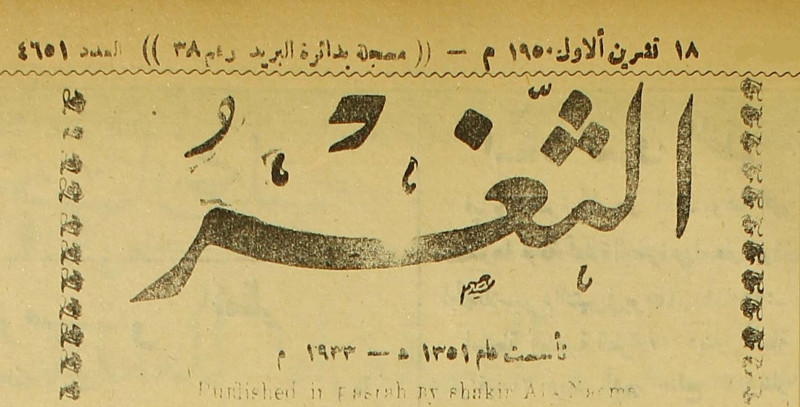 ١٨ تشرين ألاول ١٩٥٠ م — (( مسجلة بدائرة البريد رقم ٣٨ )) العدد ٤٦٥١
الثَّغْرُ
تأسست عام ١٣٥١ هـ — ١٩٣٣ م
Published in Basrah by Shakir Al-Naema